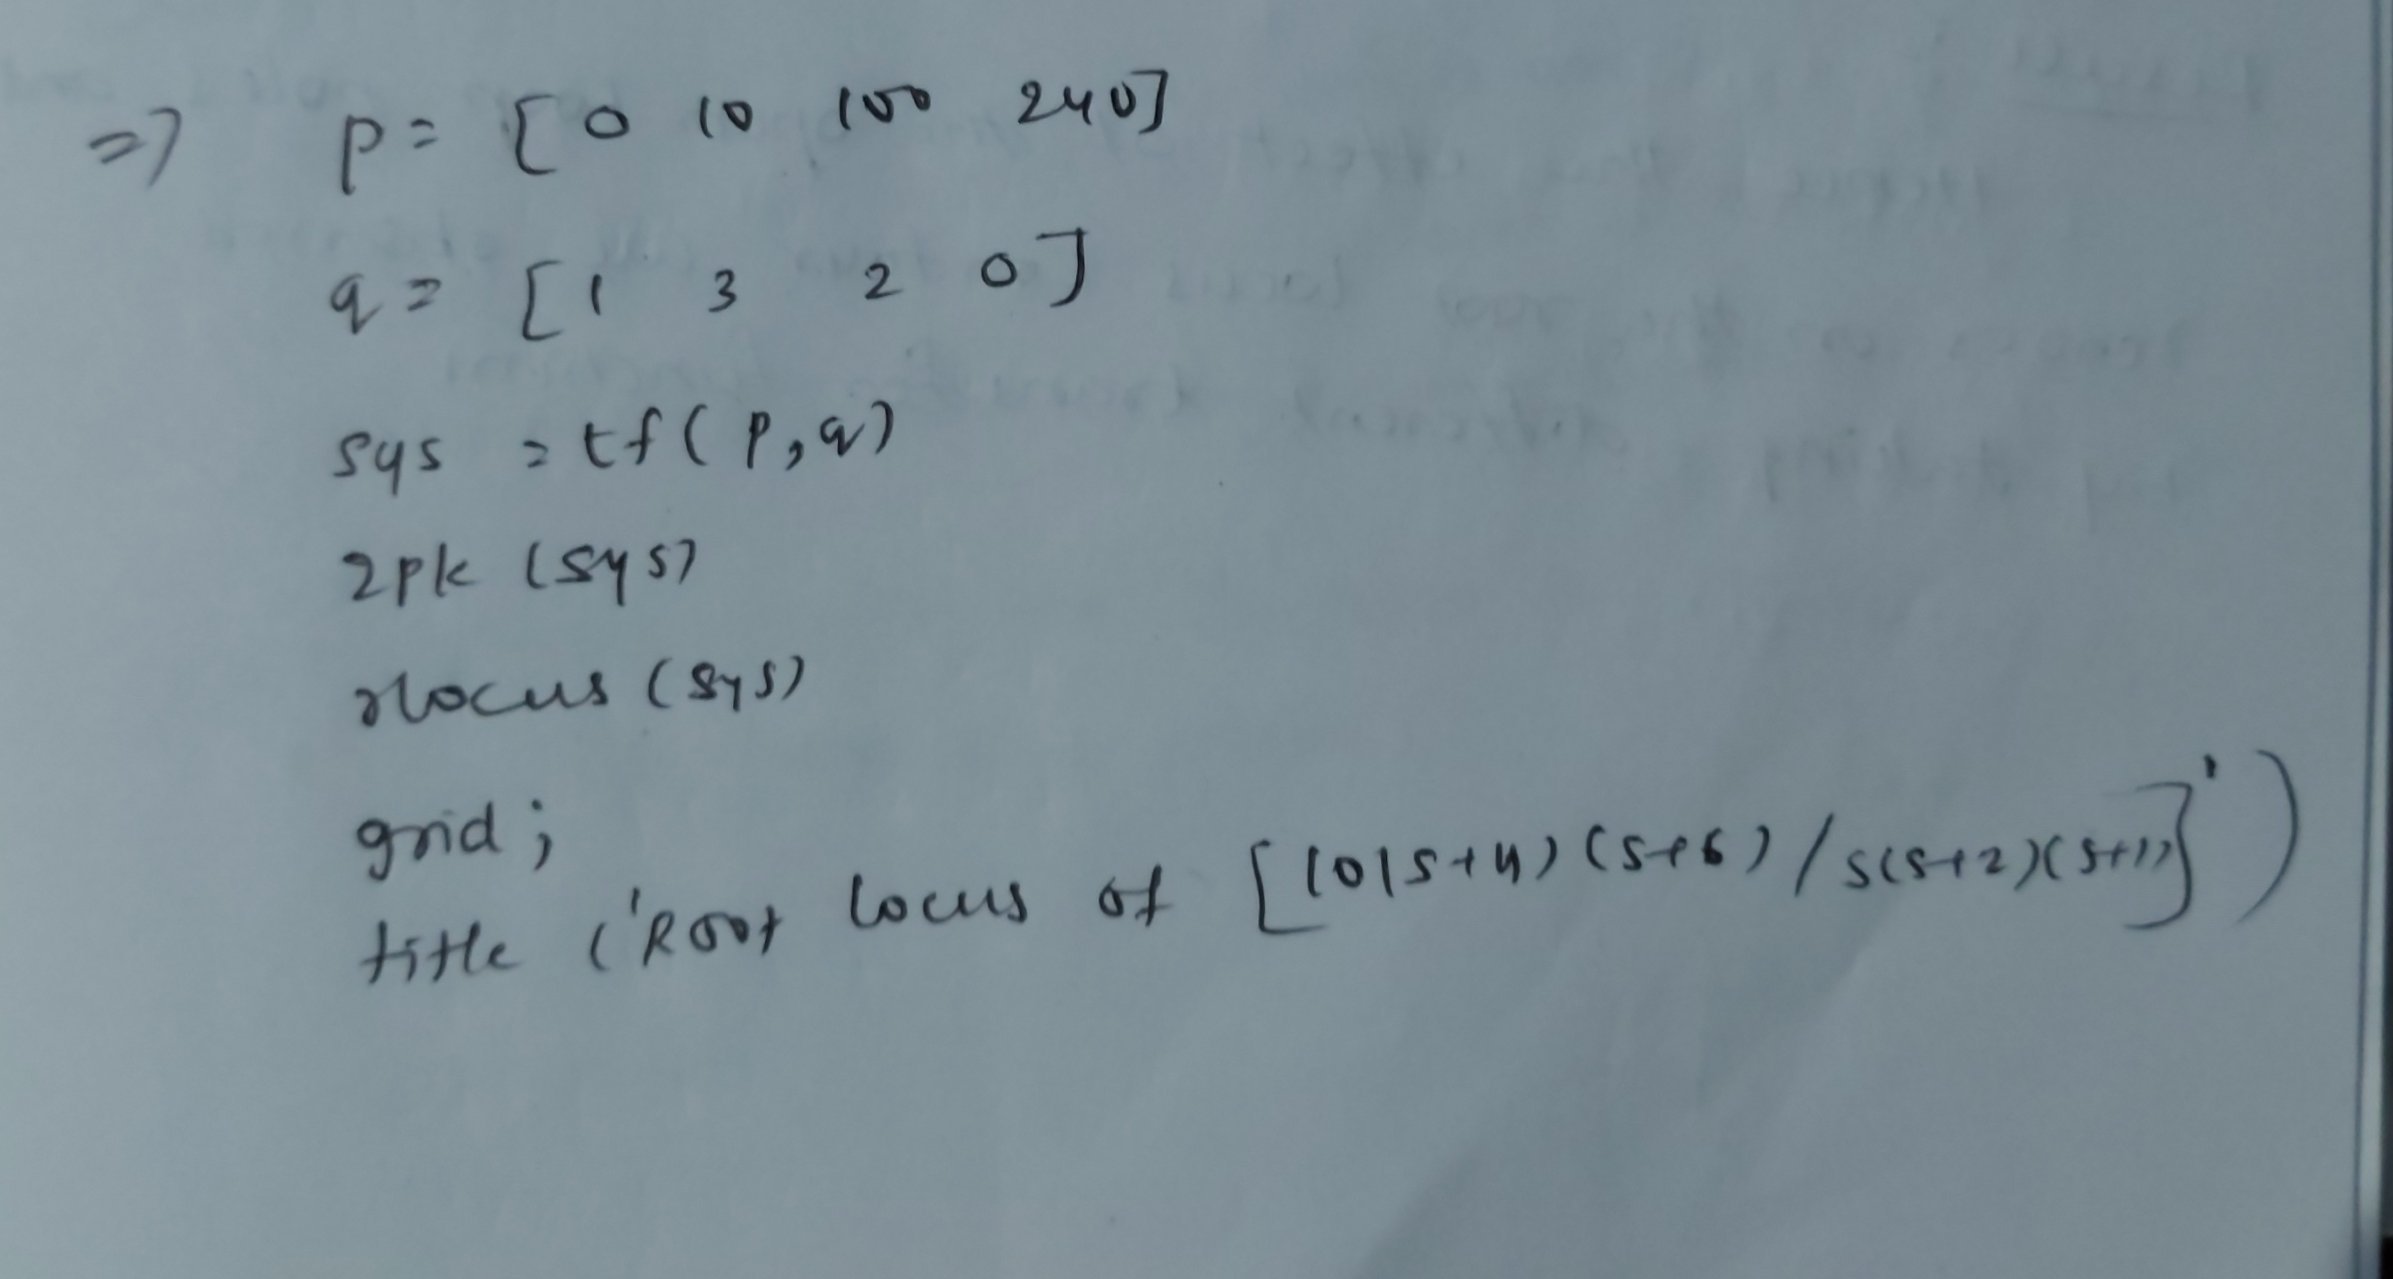 => p = [0 10 100 240]
q = [1 3 2 0]
sys = tf(p,q)
zpk (sys)
rlocus (sys)
grid;
title ('Root locus of [10(s+4)(s+6)/s(s+2)(s+1)]')